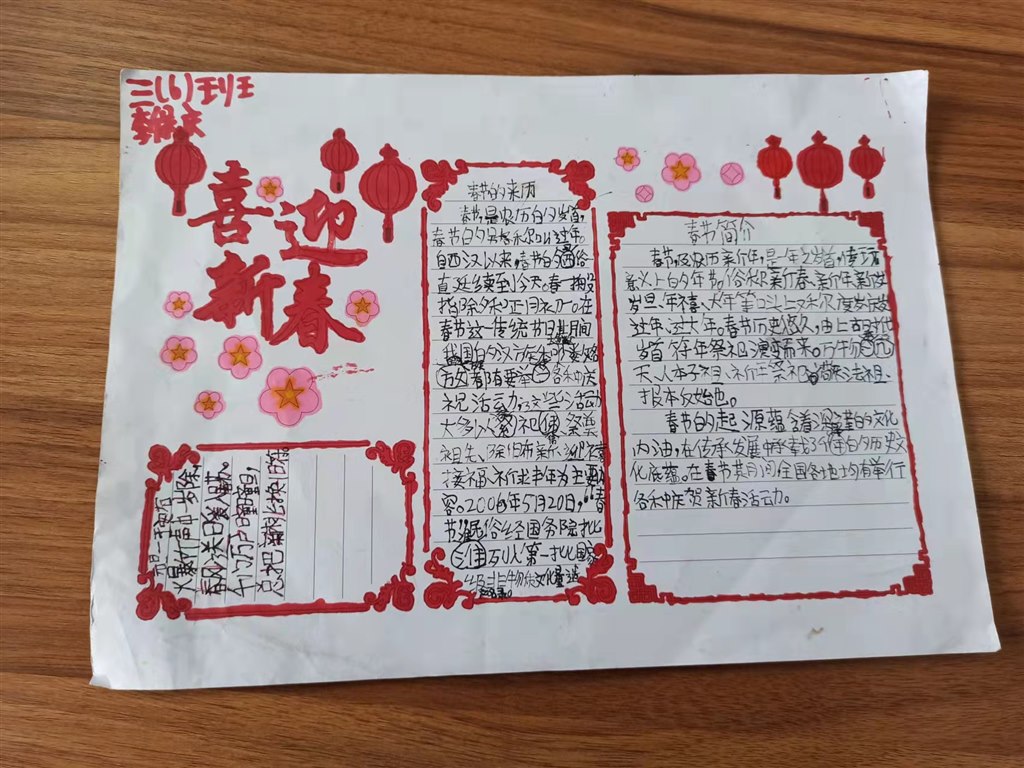 三(6)班
喜迎
新春
春节的来历
春节是农历的岁首,
春节的另名称叫过年。
自西汉以来,春节的习俗
直延续到今天。春节一般
指除夕和正月初一。在
春节这一传统节日期间
我国的汉族和
都有要举 各种庆
祝活动,这些活动
大多以 祀 祭奠
祖先、除旧布新、
接福、祈求丰年为主要
容。2006年5月20日,“春
节 俗经国务院批
列入第一批国家
级非物质文化遗
春节简介
春节即农历新年,是一年之岁首,传统
意义上的年节。俗称新春、新年、新岁
岁旦、年禧、大年等,口头上又称度岁
过年、过大年。春节历史悠久,由上古时代
岁首祈年祭祀演变而来。万物
天、人本乎祖,祈年祭祀
报本反始也。
春节的起源蕴含着深邃的文化
内涵,在传承发展中承载了 的历史文
化底蕴。在春节其月间,全国各地均有举行
各种庆贺新春活动。
元日 王安石
爆竹声中一岁除,
春风送 暖
千门万户曈曈日,
总把新